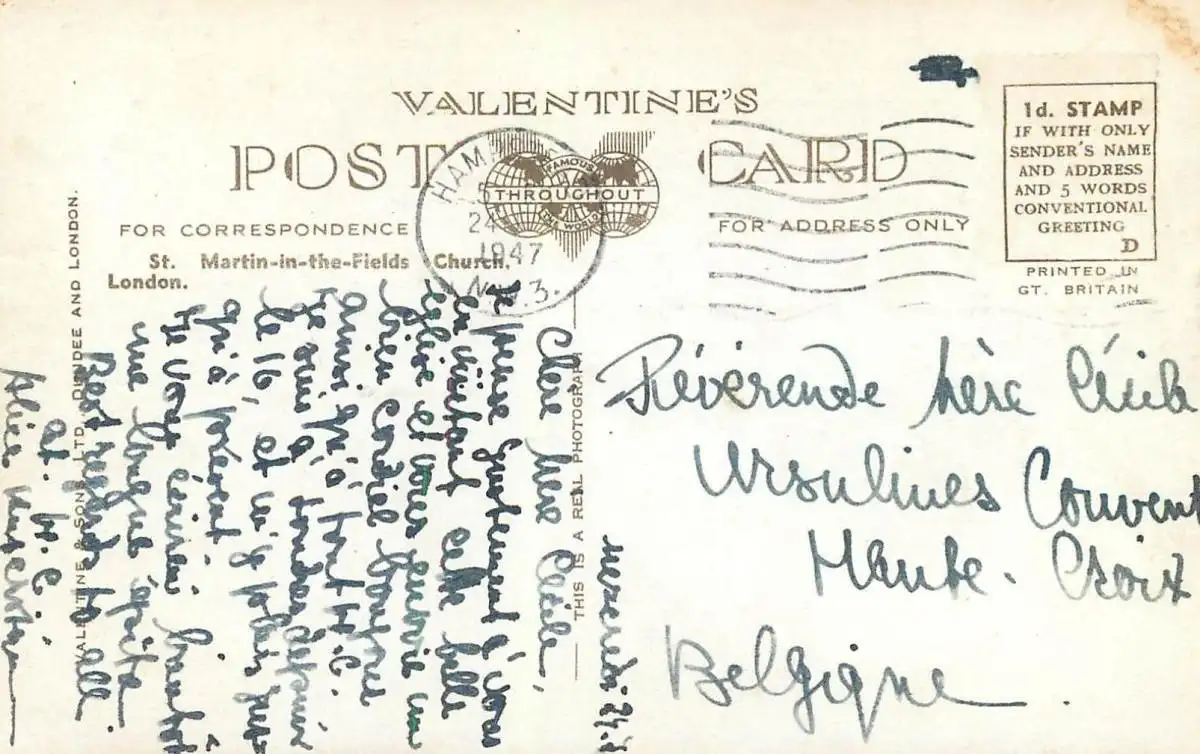 VALENTINE'S
POST CARD
FAMOUS
THROUGHOUT
THE WORLD
HAMP
24
1947
N.W.3.
FOR CORRESPONDENCE
FOR ADDRESS ONLY
St. Martin-in-the-Fields Church.
London.
1d. STAMP
IF WITH ONLY
SENDER'S NAME
AND ADDRESS
AND 5 WORDS
CONVENTIONAL
GREETING
D
PRINTED IN
GT. BRITAIN
VALENTINE & SONS, LTD., DUNDEE AND LONDON.
THIS IS A REAL PHOTOGRAPH
mercredi 24.
Chère Mère Cécile,
Je pense justement à vous
en visitant cette belle
église et vous envoie un
bien cordial bonjour
ainsi qu'à tout H.C.
Je suis à Londres depuis
le 16, et m'y plais
qu'à présent
Je vous écrirai bientôt
une longue épître
Best regards to all
at H.C.
Révérende Mère Cécile
Ursulines Convent
Haute-Croix
Belgique.